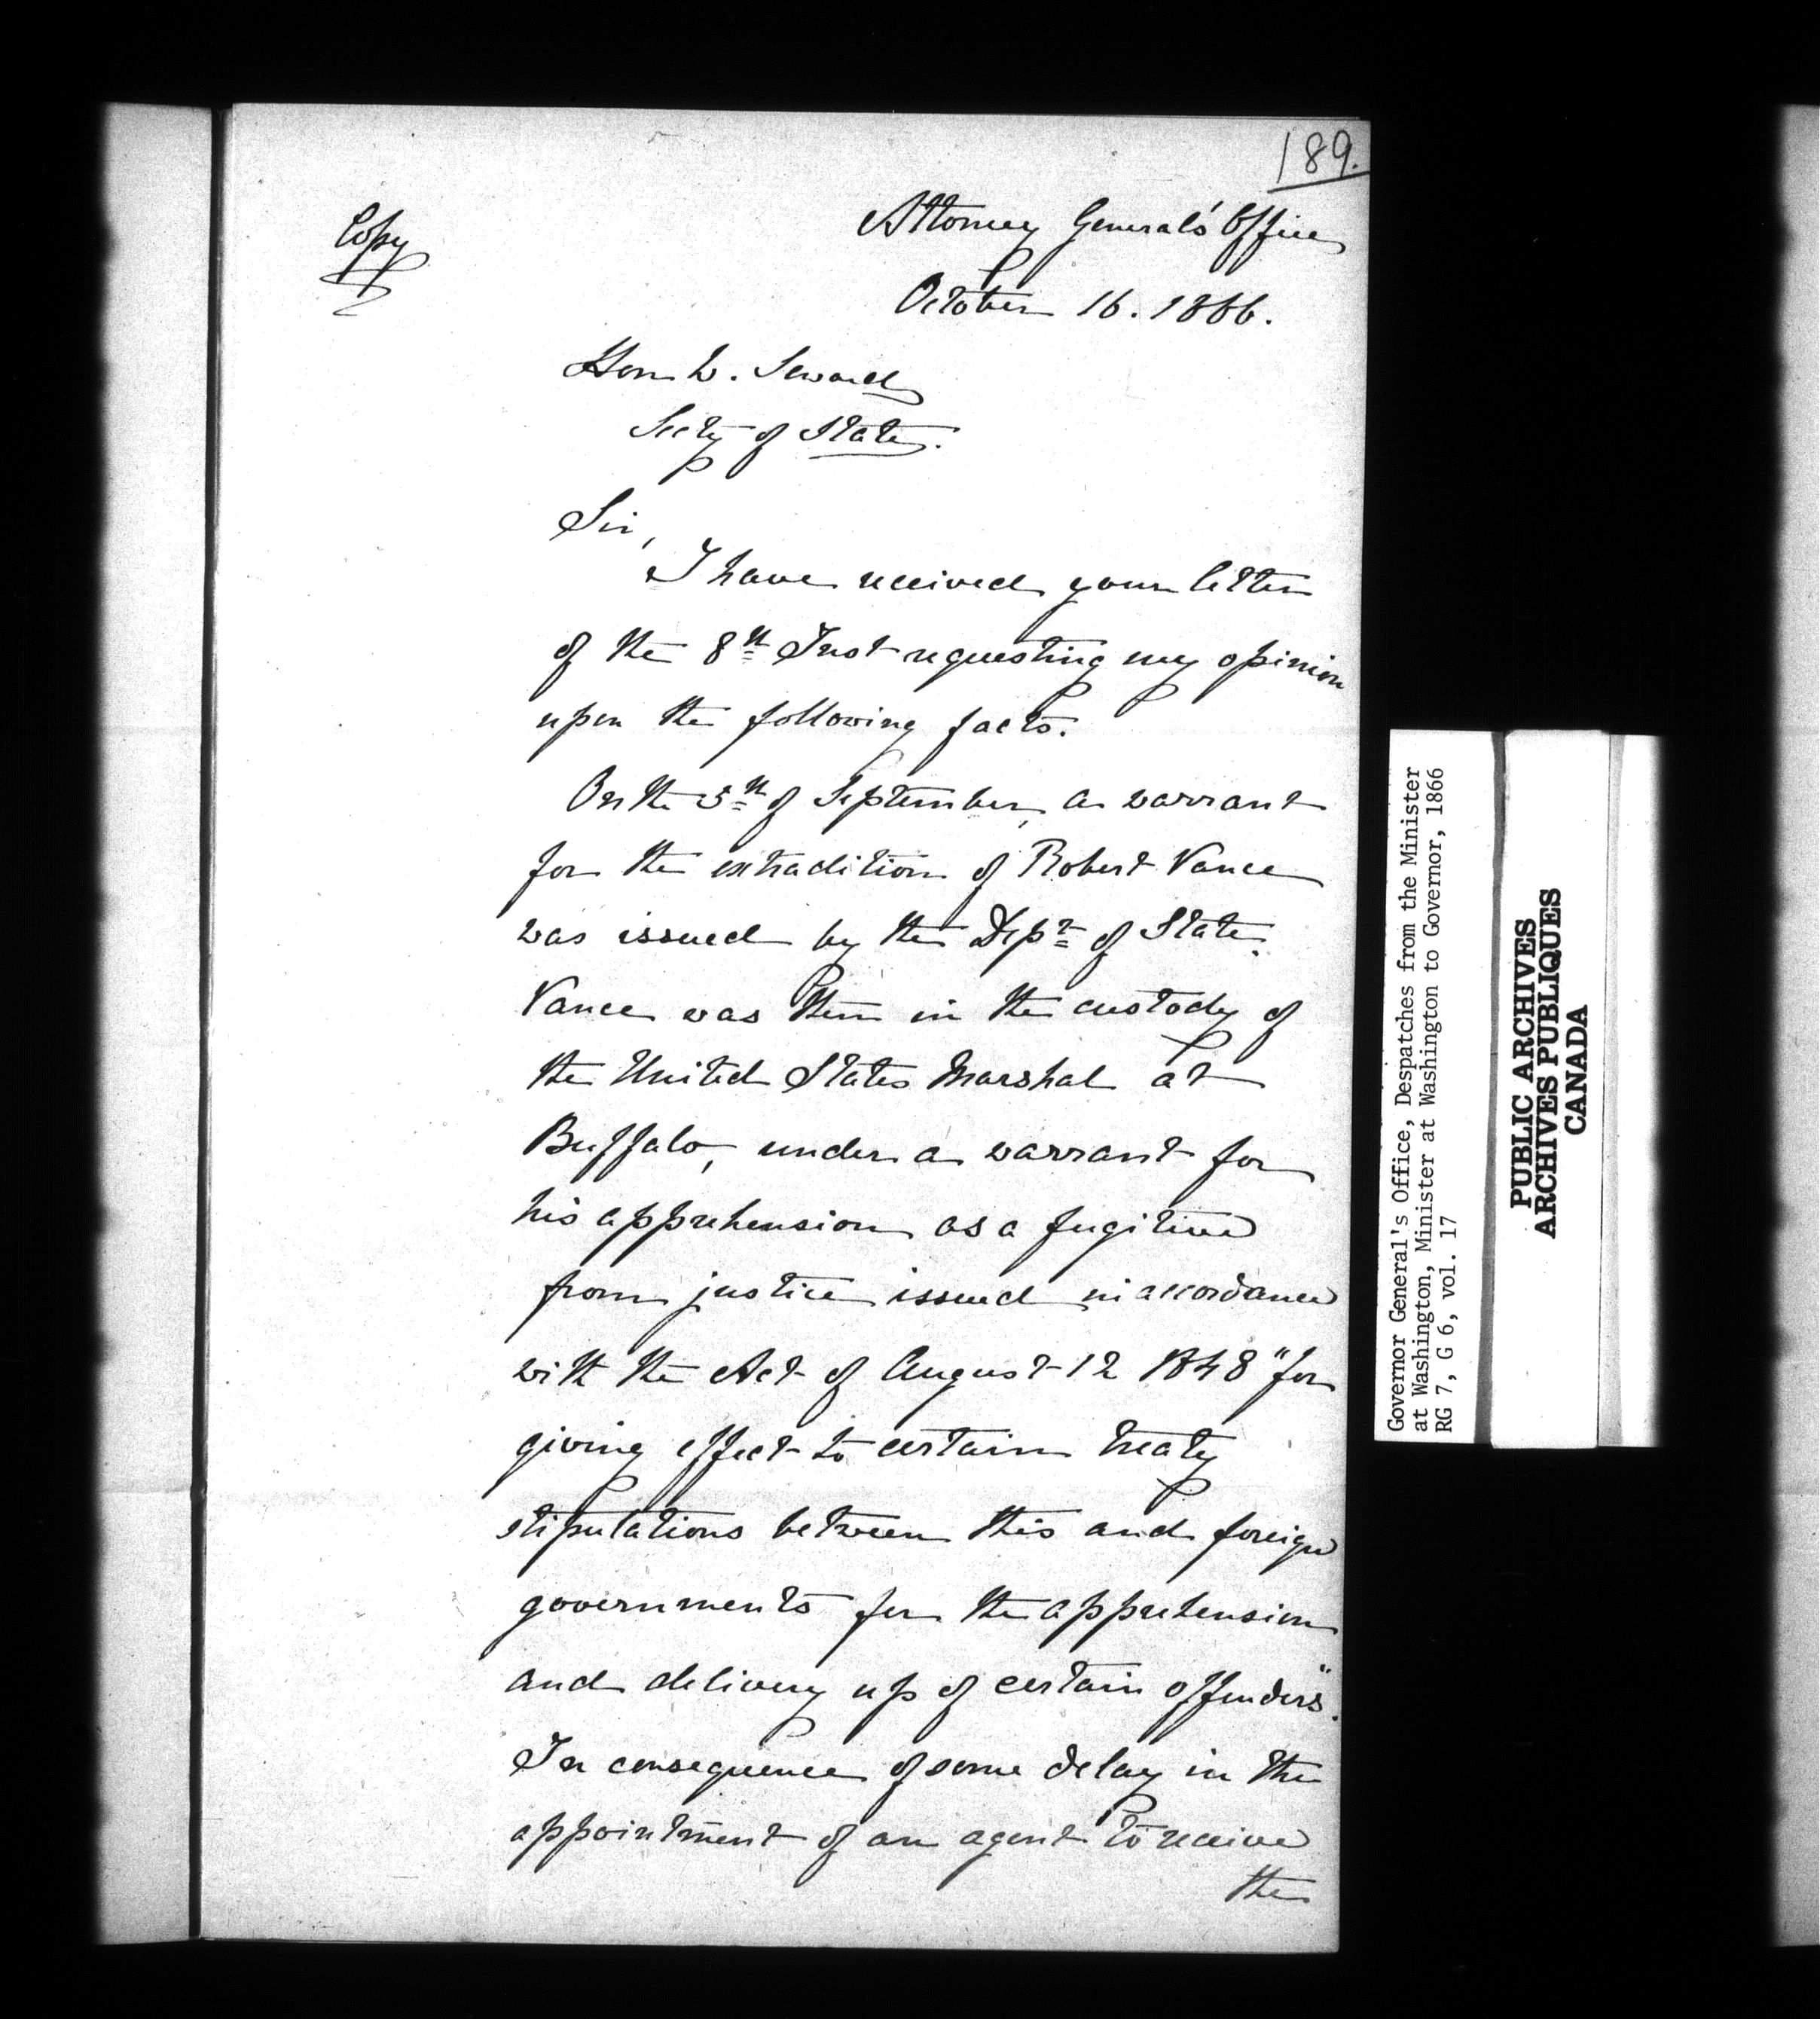 189.
Copy
Attorney General's Office
October 16. 1866.
Hon W. Seward
Secty of State.
Sir,
I have received your letter
of the 8th Inst requesting my opinion
upon the following facts.
On the 5th of September, a warrant
for the extradition of Robert Vance
was issued by the Dept of State.
Vance was then in the custody of
the United States Marshal at
Buffalo, under a warrant for
his apprehension as a fugitive
from justice issued in accordance
with the Act of August 12 1848 "for
giving effect to certain treaty
stipulations between this and foreign
governments for the apprehension
and delivery up of certain offenders".
In consequence of some delay in the
appointment of an agent to receive
the
Governor General's Office, Despatches from the Minister
at Washington, Minister at Washington to Governor, 1866
RG 7, G 6, vol. 17
PUBLIC ARCHIVES
ARCHIVES PUBLIQUES
CANADA